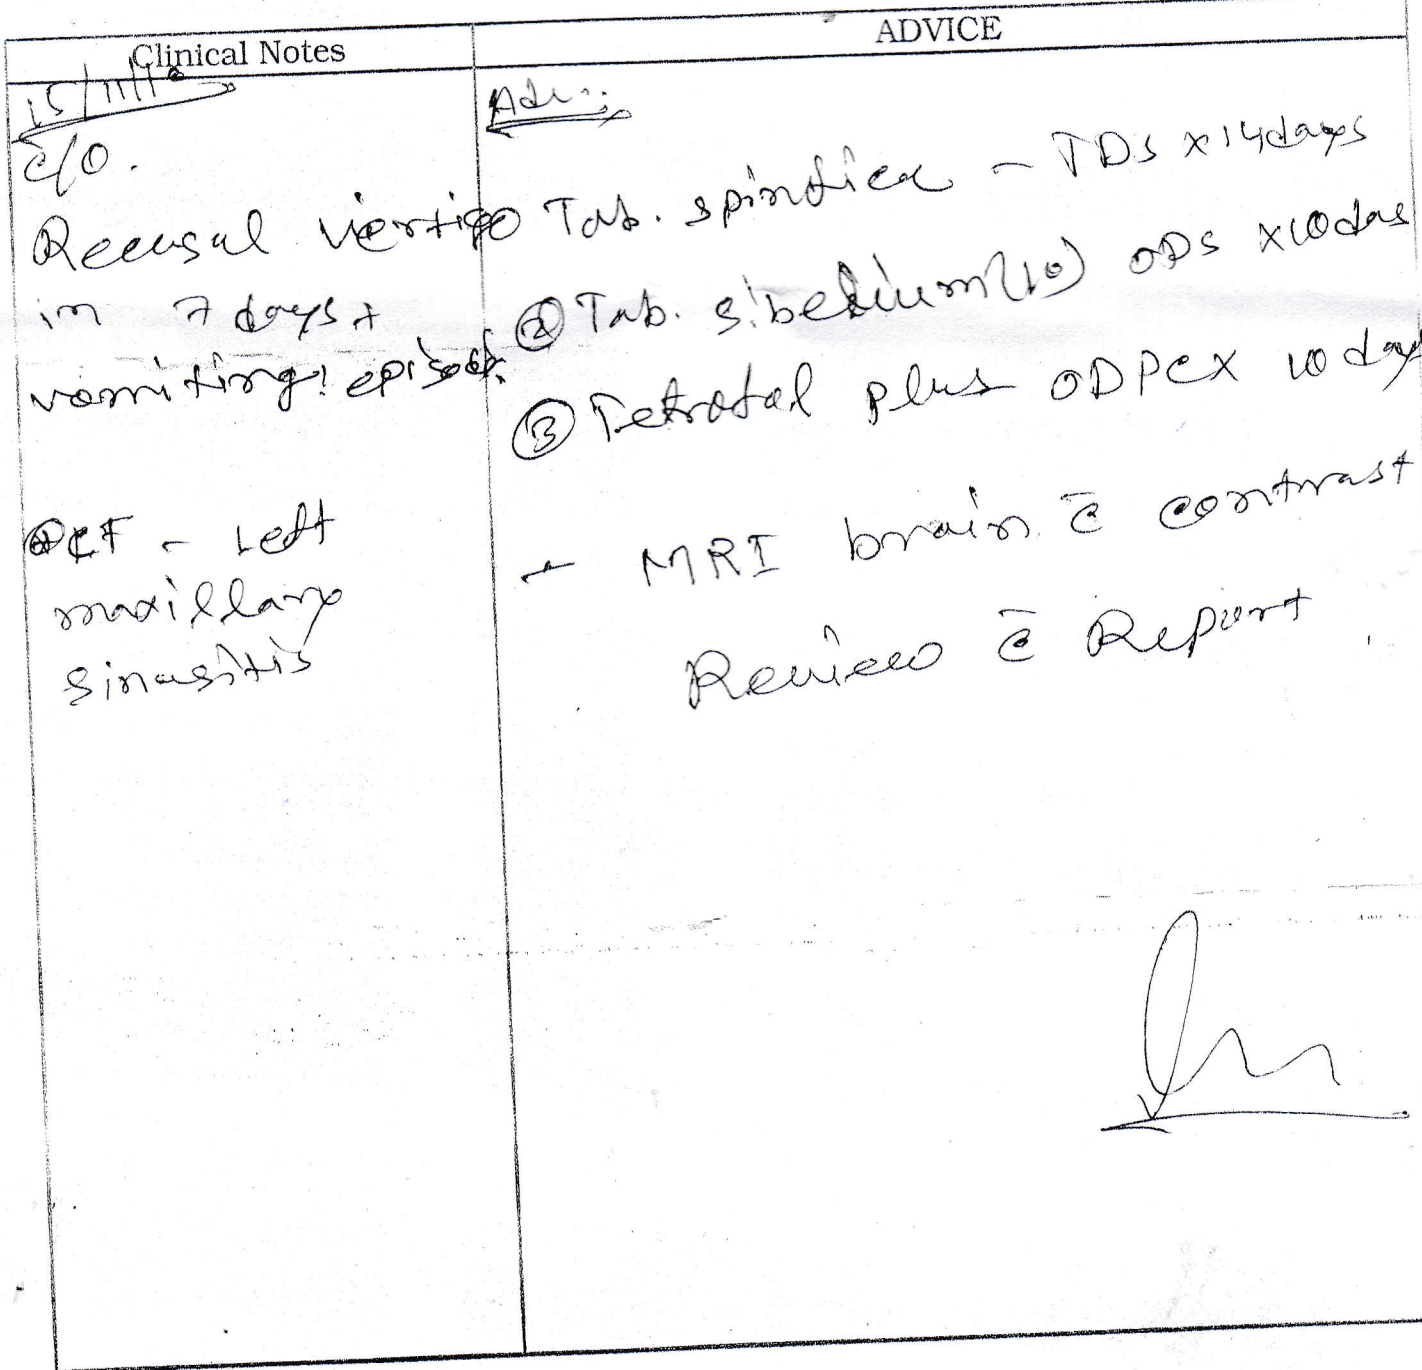 Clinical Notes
ADVICE
15/11/1
c/o.
Recusal vertigo
in 7 days +
vomiting episode.
CT - Left
maxillary
sinusitis
Adv:
Tab. spindica - TDS x 14 days
② Tab. sibelium (10) ODS x 10 das
③ Tetrafol plus ODPC x 10 days
- MRI brain c̄ contrast
Review c̄ Report